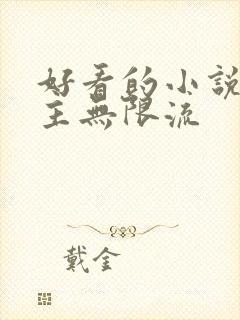 好看的小說
主無限流
戴金